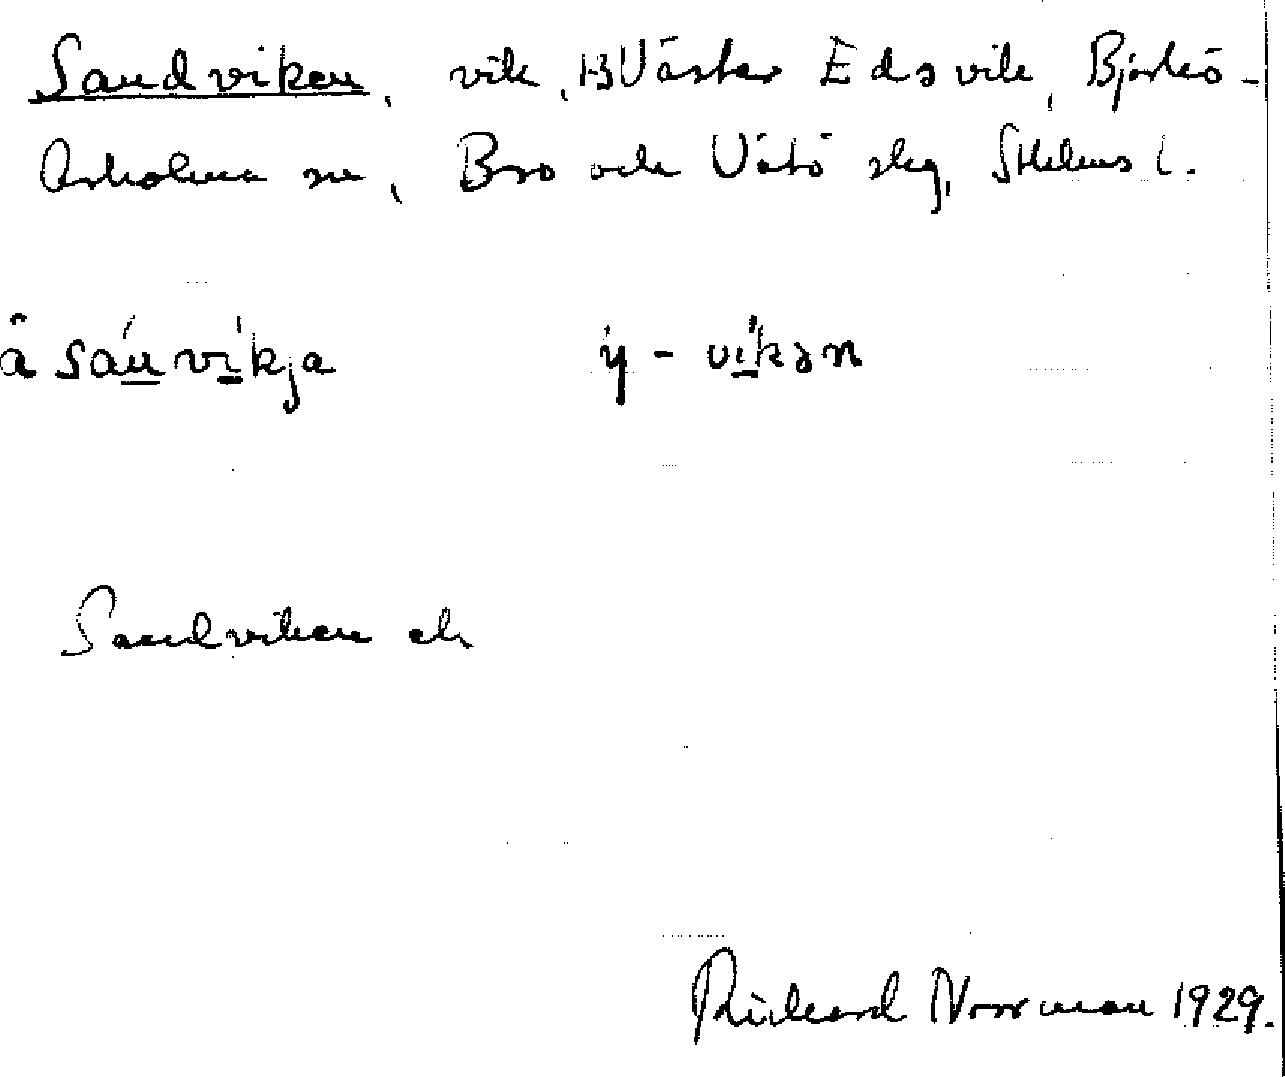 Sandviken, vik, 13 Väster Edsvik, Björkö-
Arholma sn, Bro och Vätö skg, Sthlms l.
a sánvíkja ý - víkən
Sandviken ek
Rickard Norrman 1929.